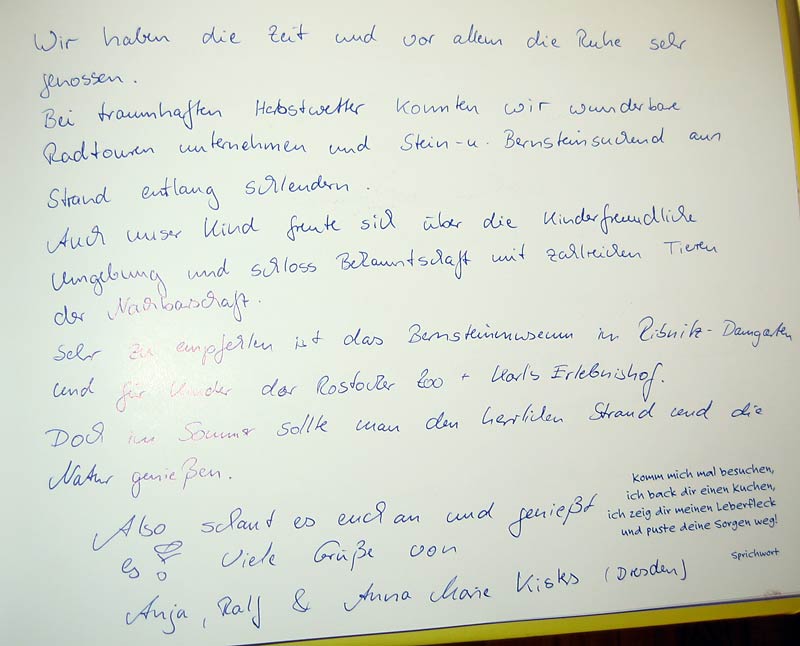 Wir haben die Zeit und vor allem die Ruhe sehr
genossen.
Bei traumhaften Herbstwetter konnten wir wunderbare
Radtouren unternehmen und Stein- u. Bernsteinsuchend am
Strand entlang schlendern.
Auch unser Kind freute sich über die kinderfreundliche
Umgebung und schloss Bekanntschaft mit zahlreichen Tieren
der Nachbarschaft.
Sehr zu empfehlen ist das Bernsteinmuseum in Ribnitz-Damgarten
und für Kinder der Rostocker Zoo + Karl's Erlebnishof.
Doch im Sommer sollte man den herrlichen Strand und die
Natur genießen.
Also schaut es euch an und genießt
es! Viele Grüße von
Anja, Ralf & Anna Marie Kisks (Dresden)
Komm mich mal besuchen,
ich back dir einen Kuchen,
ich zeig dir meinen Leberfleck
und puste deine Sorgen weg!
Sprichwort